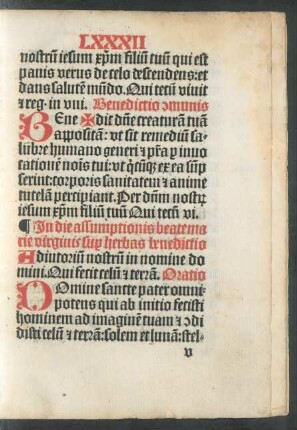 LXXXII
nostrū iesum xp̄m filiū tuū qui est
panis verus de celo descendens: et
dans salutē mūdo. Qui tecū viuit
et reg. in vni. Benedictio ꝯmunis
BEne ✠ dic dn̄e creaturā tuā
appositā: vt sit remediū sa-
lubre humano generi ⁊ pn̄a p inuo
cationē noīs tui: vt qͥcūqꝫ ex ea sūp
serint: corporis sanitatem ⁊ anime
tutelā percipiant. Per dn̄m nostrꝫ
iesum xp̄m filiū tuū Qui tecū vi.
¶ In die assumptionis beate ma
rie virginis suꝑ herbas bn̄edictio
Adiutoriū nostrū in nomine do
mini. Qui fecit celū ⁊ terrā. Oratio
DOmine sancte pater omni
potens qui ab initio fecisti
hominem ad imaginē tuam ⁊ ꝯdi
disti celū ⁊ terrā: solem et lunā: stel-
v